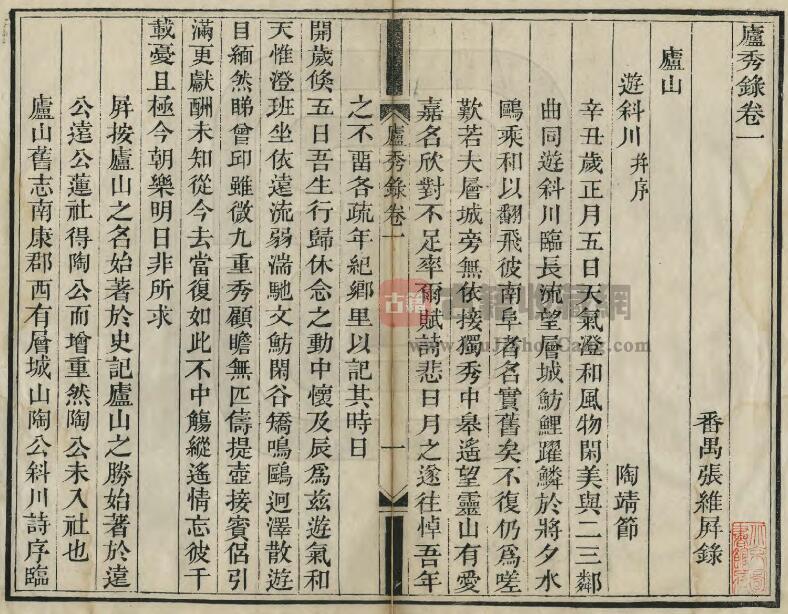 廬秀錄卷一
番禺張維屛錄
廬山
遊斜川幷序 陶靖節
辛丑歲正月五日天氣澄和風物閑美與二三鄰
曲同遊斜川臨長流望層城魴鯉躍鱗於將夕水
鷗乘和以翻飛彼南阜者名實舊矣不復仍爲嗟
歎若夫層城旁無依接獨秀中臯遙望靈山有愛
嘉名欣對不足率爾賦詩悲日月之遂往悼吾年
之不畱各疏年紀鄉里以記其時日
廬秀錄卷一 一
開歲倏五日吾生行歸休念之動中懷及辰爲兹遊氣和
天惟澄班坐依遠流弱湍馳文魴閑谷矯鳴鷗迥澤散游
目緬然睇曾邱雖微九重秀顧瞻無匹儔提壺接賓侶引
滿更獻酬未知從今去當復如此不中觴縱遙情忘彼千
載憂且極今朝樂明日非所求
屛按廬山之名始著於史記廬山之勝始著於遠
公遠公蓮社得陶公而增重然陶公未入社也
廬山舊志南康郡西有層城山陶公斜川詩序臨
古籍
古籍收藏網